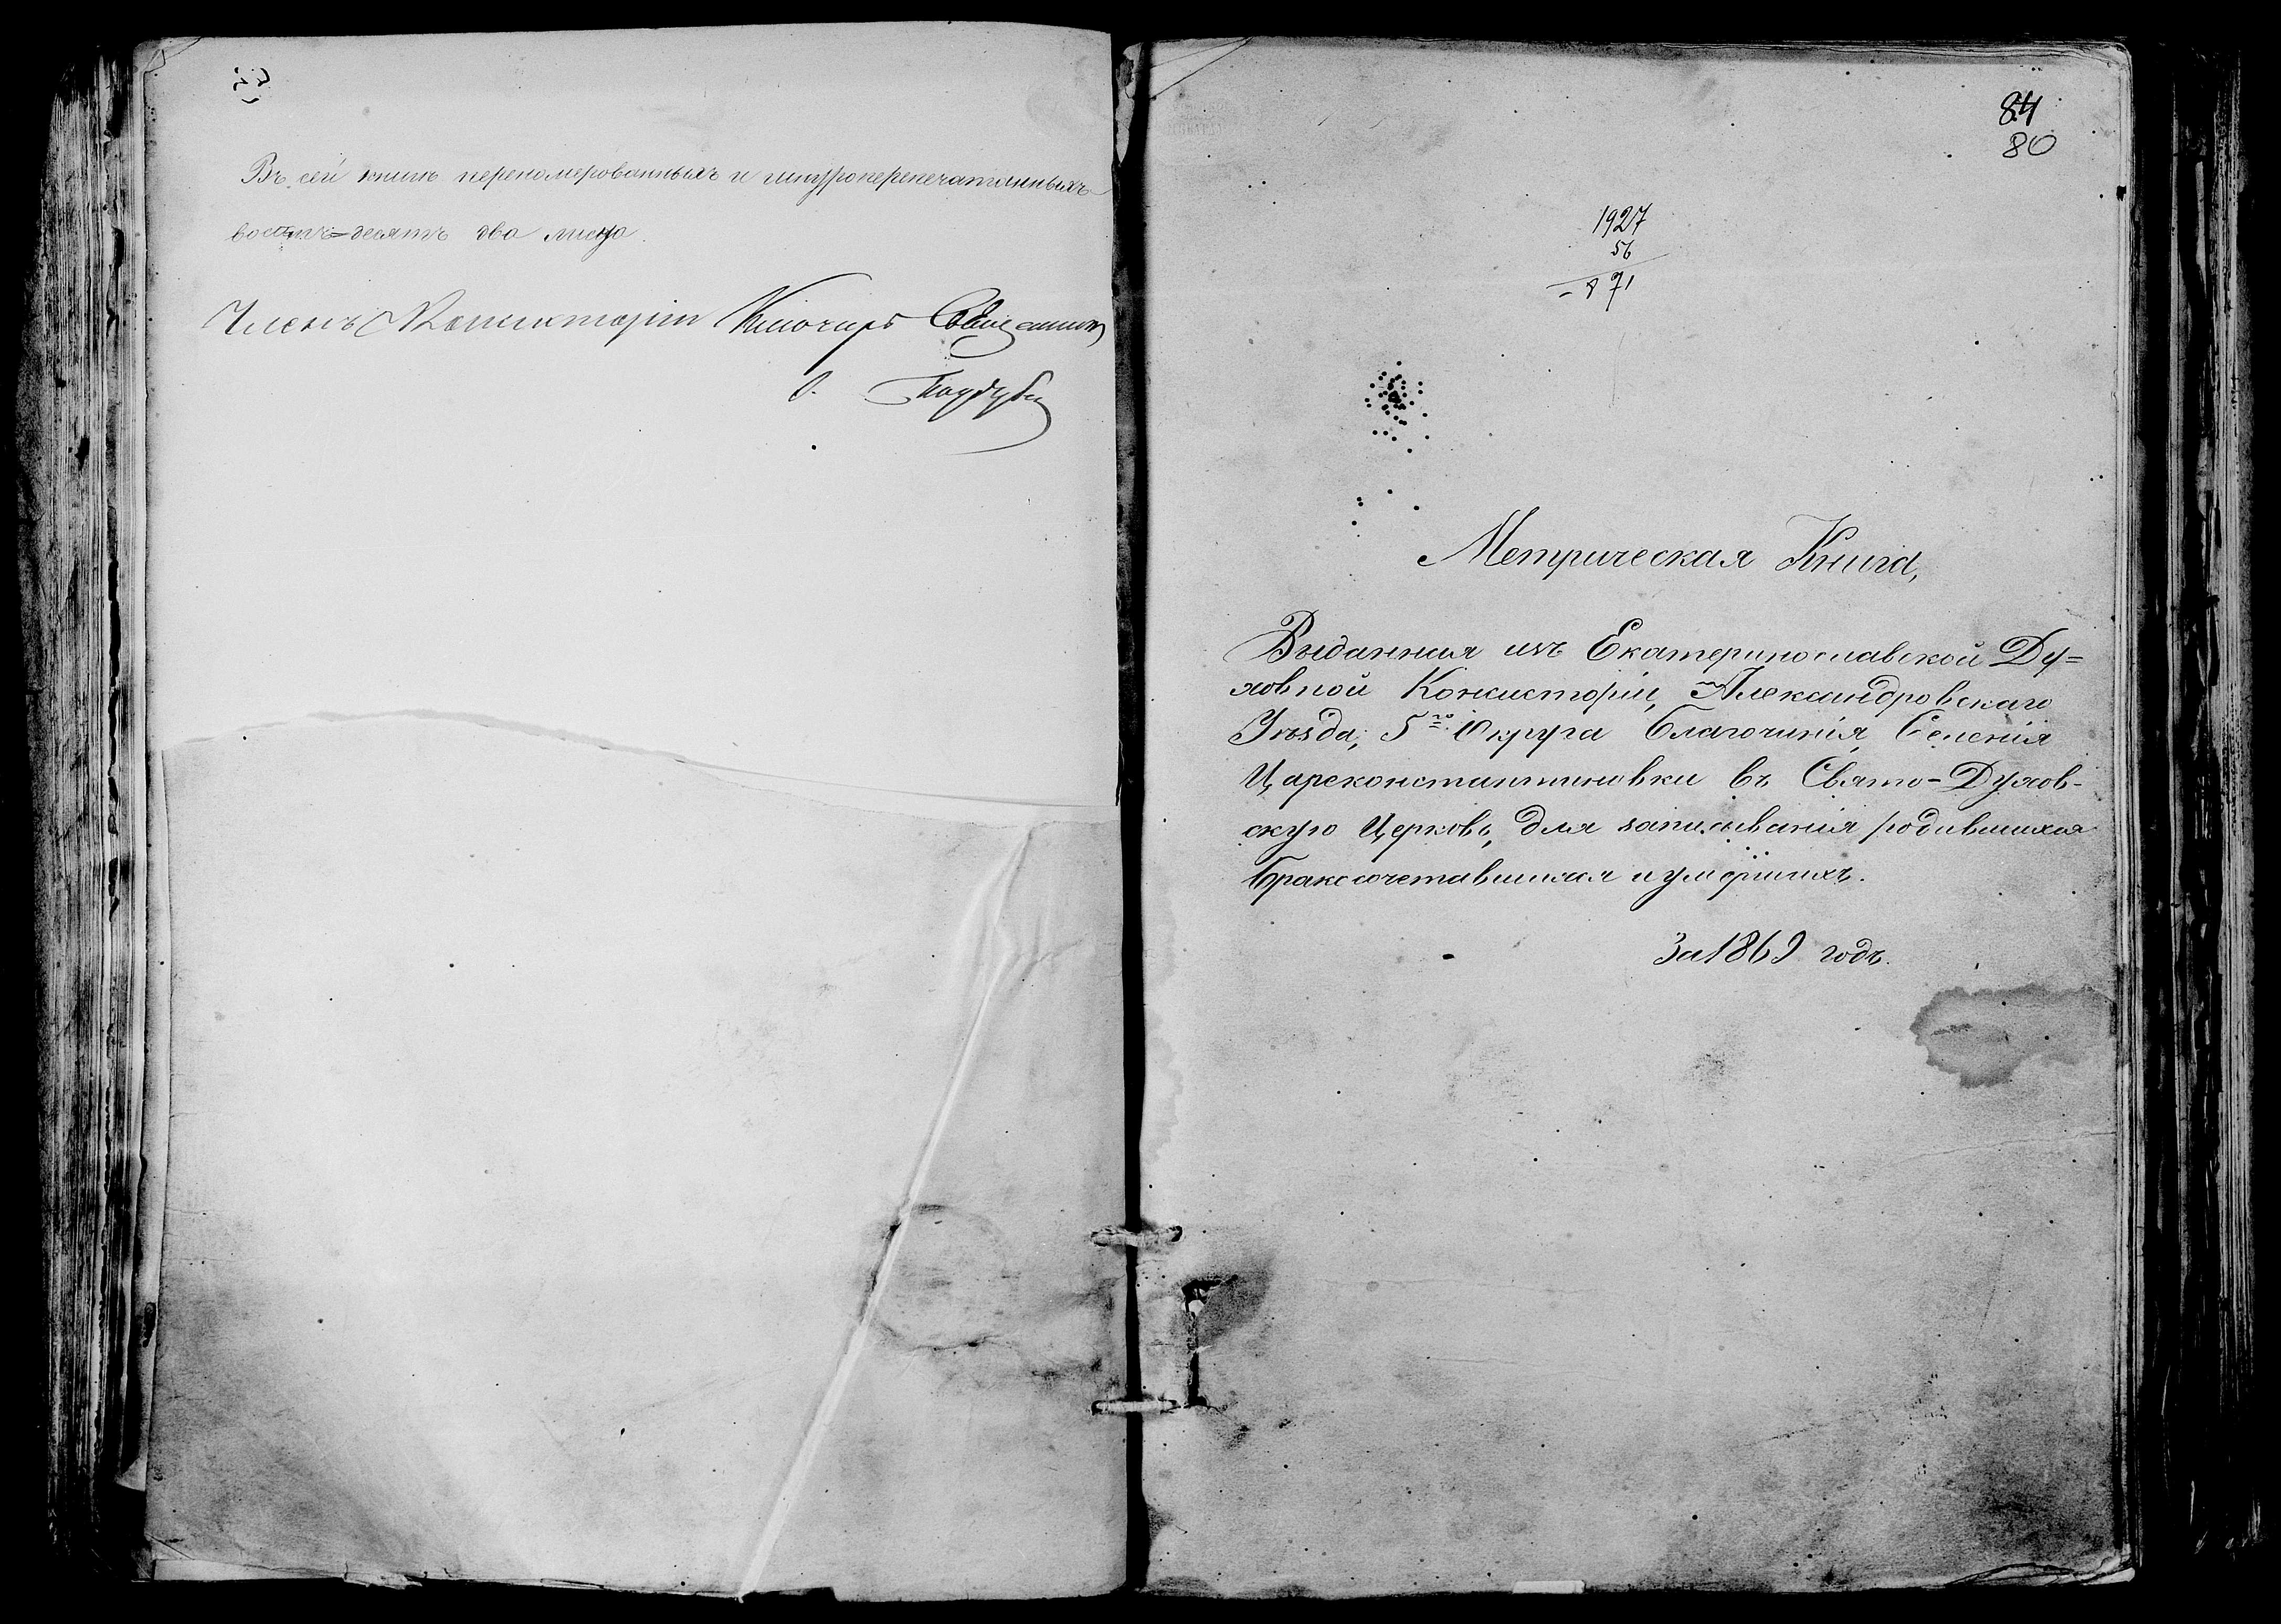 Въ сей книгѣ перенумерованныхъ и шнуроперепечатанныхъ
восемь=десятъ два листа.
Членъ Консисторіи Ключарь Священникъ
84
80
1927
56
71
Метрическая Книга,
Выданная изъ Екатеринославской Ду=
ховной Консисторіи, Александровскаго
Уѣзда, 5го Округа Благочинія, Селенія
Цареконстантиновки въ Свято-Духов-
скую Церковь, для записыванія родившихся
бракосочетавшихся и умершихъ.
За 1869 годъ.